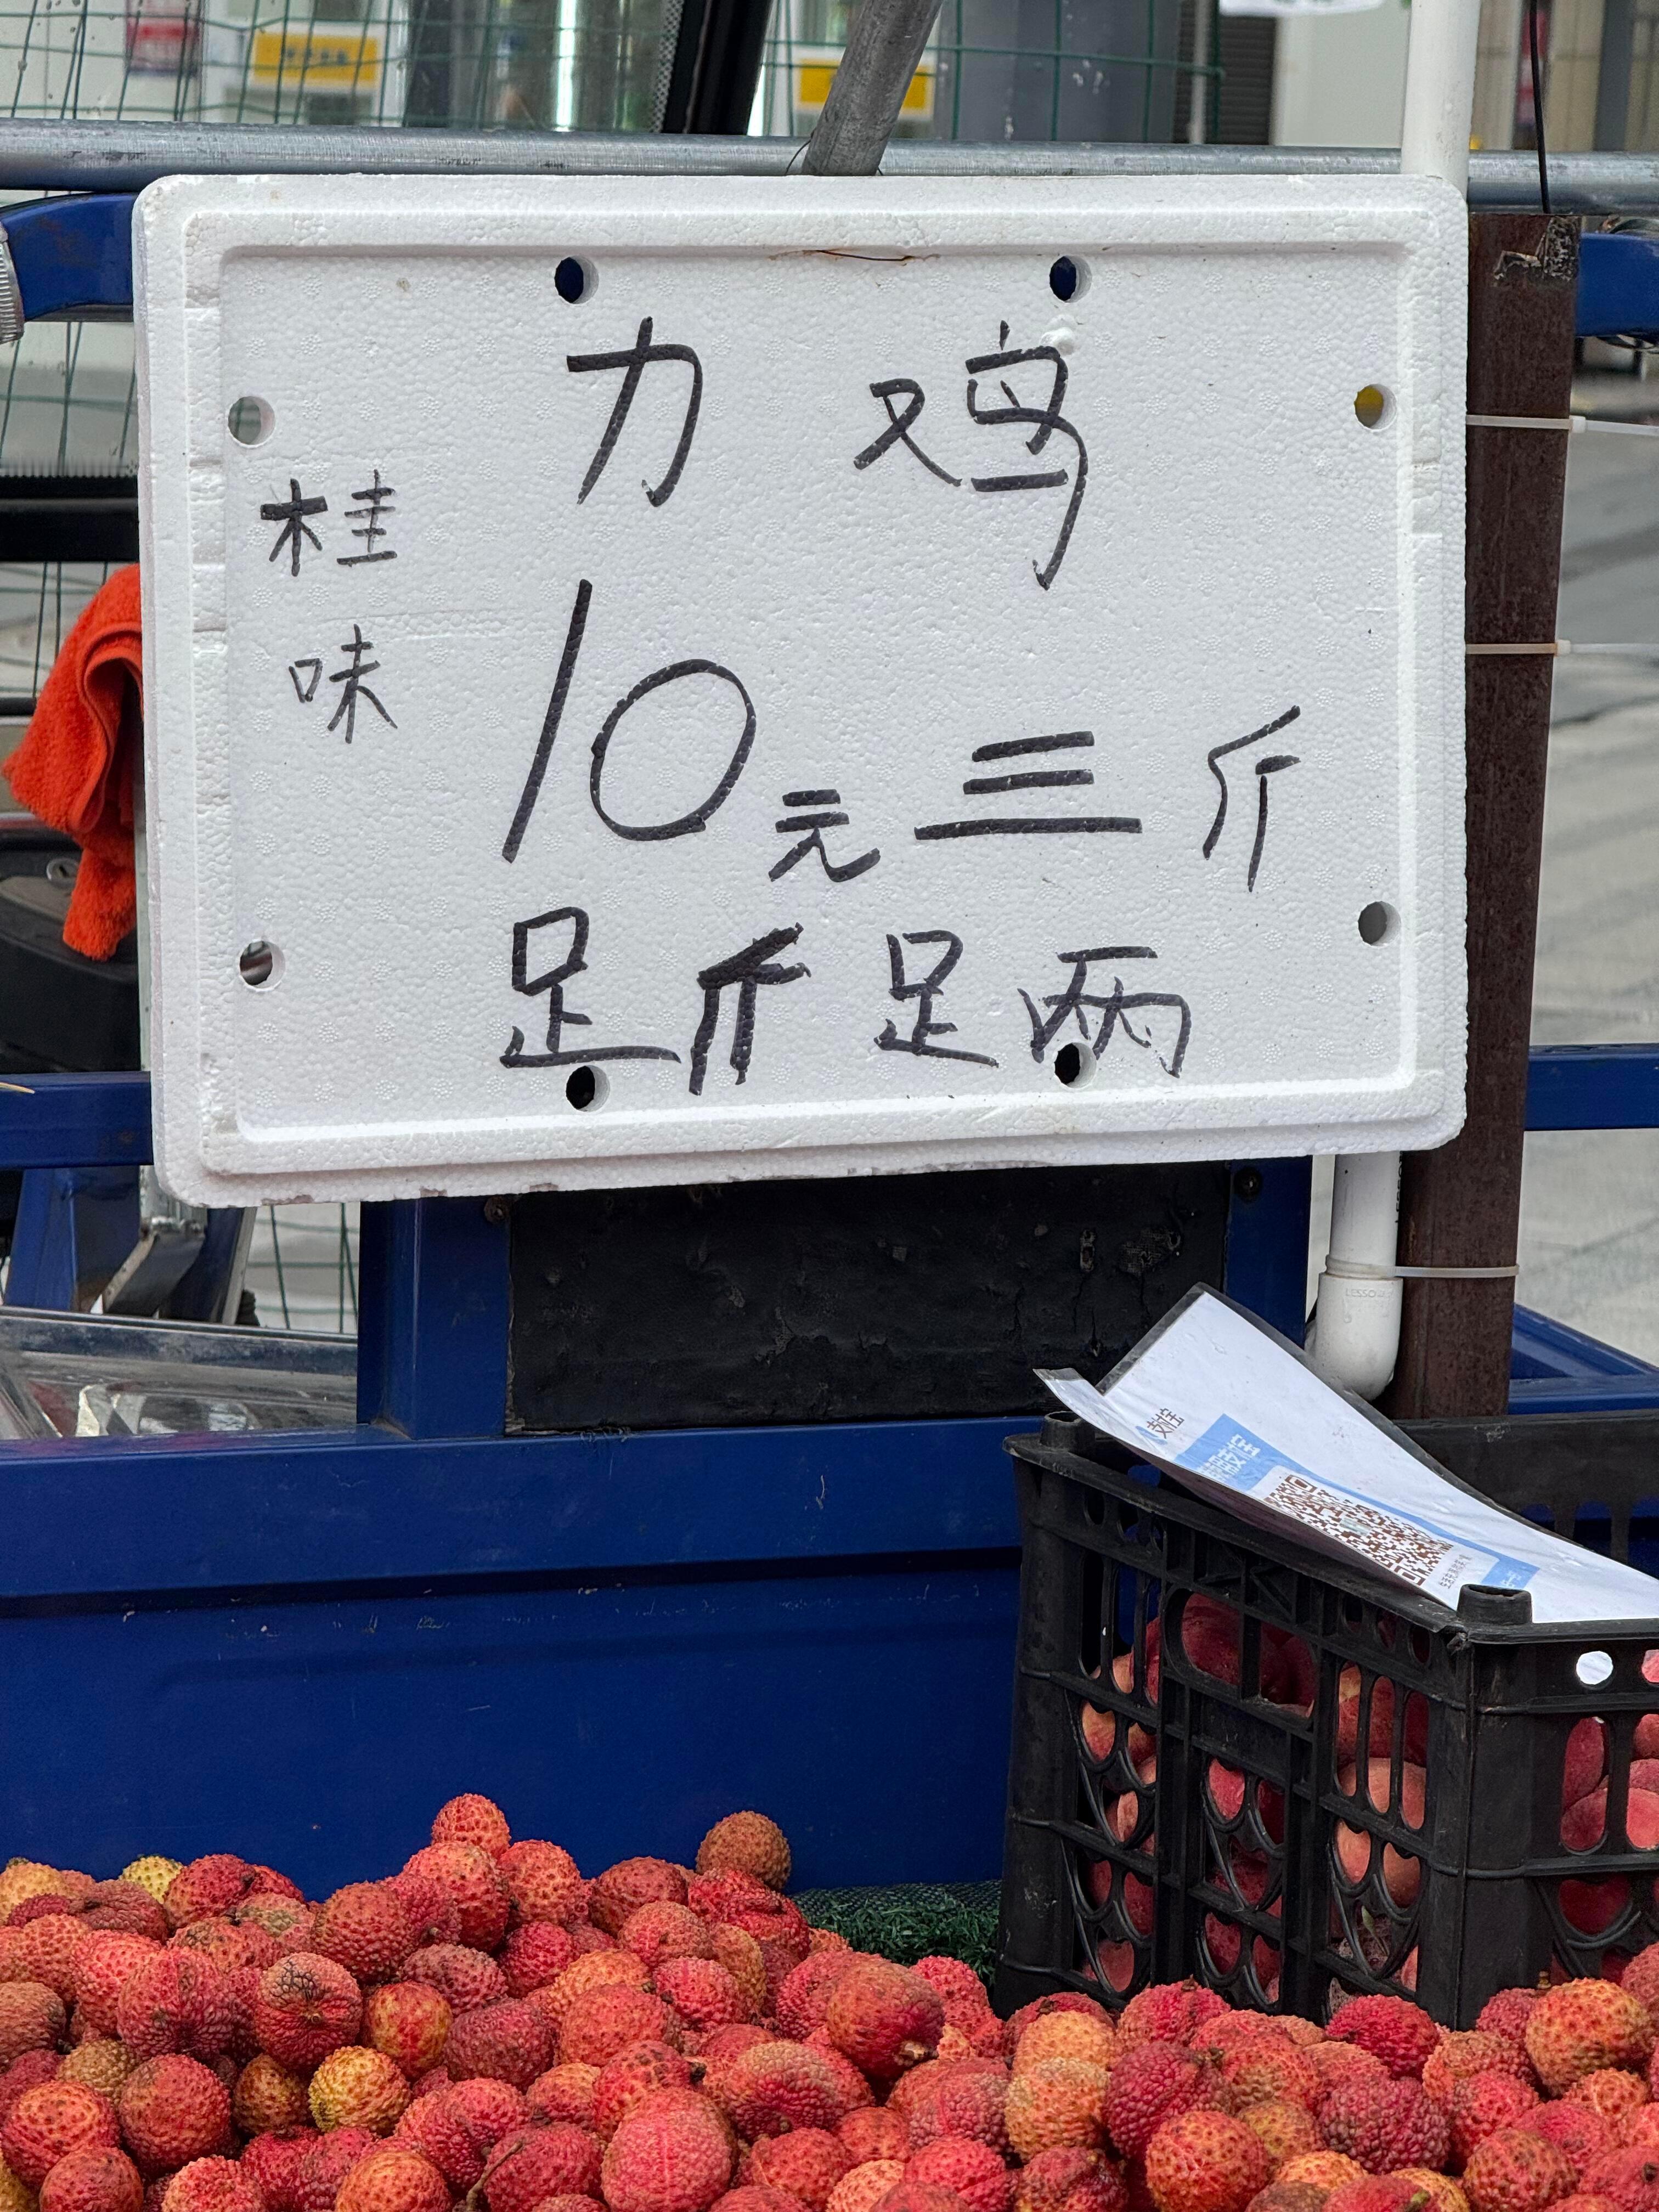 力 鸡
桂
味
10元三斤
足斤足两
支付宝